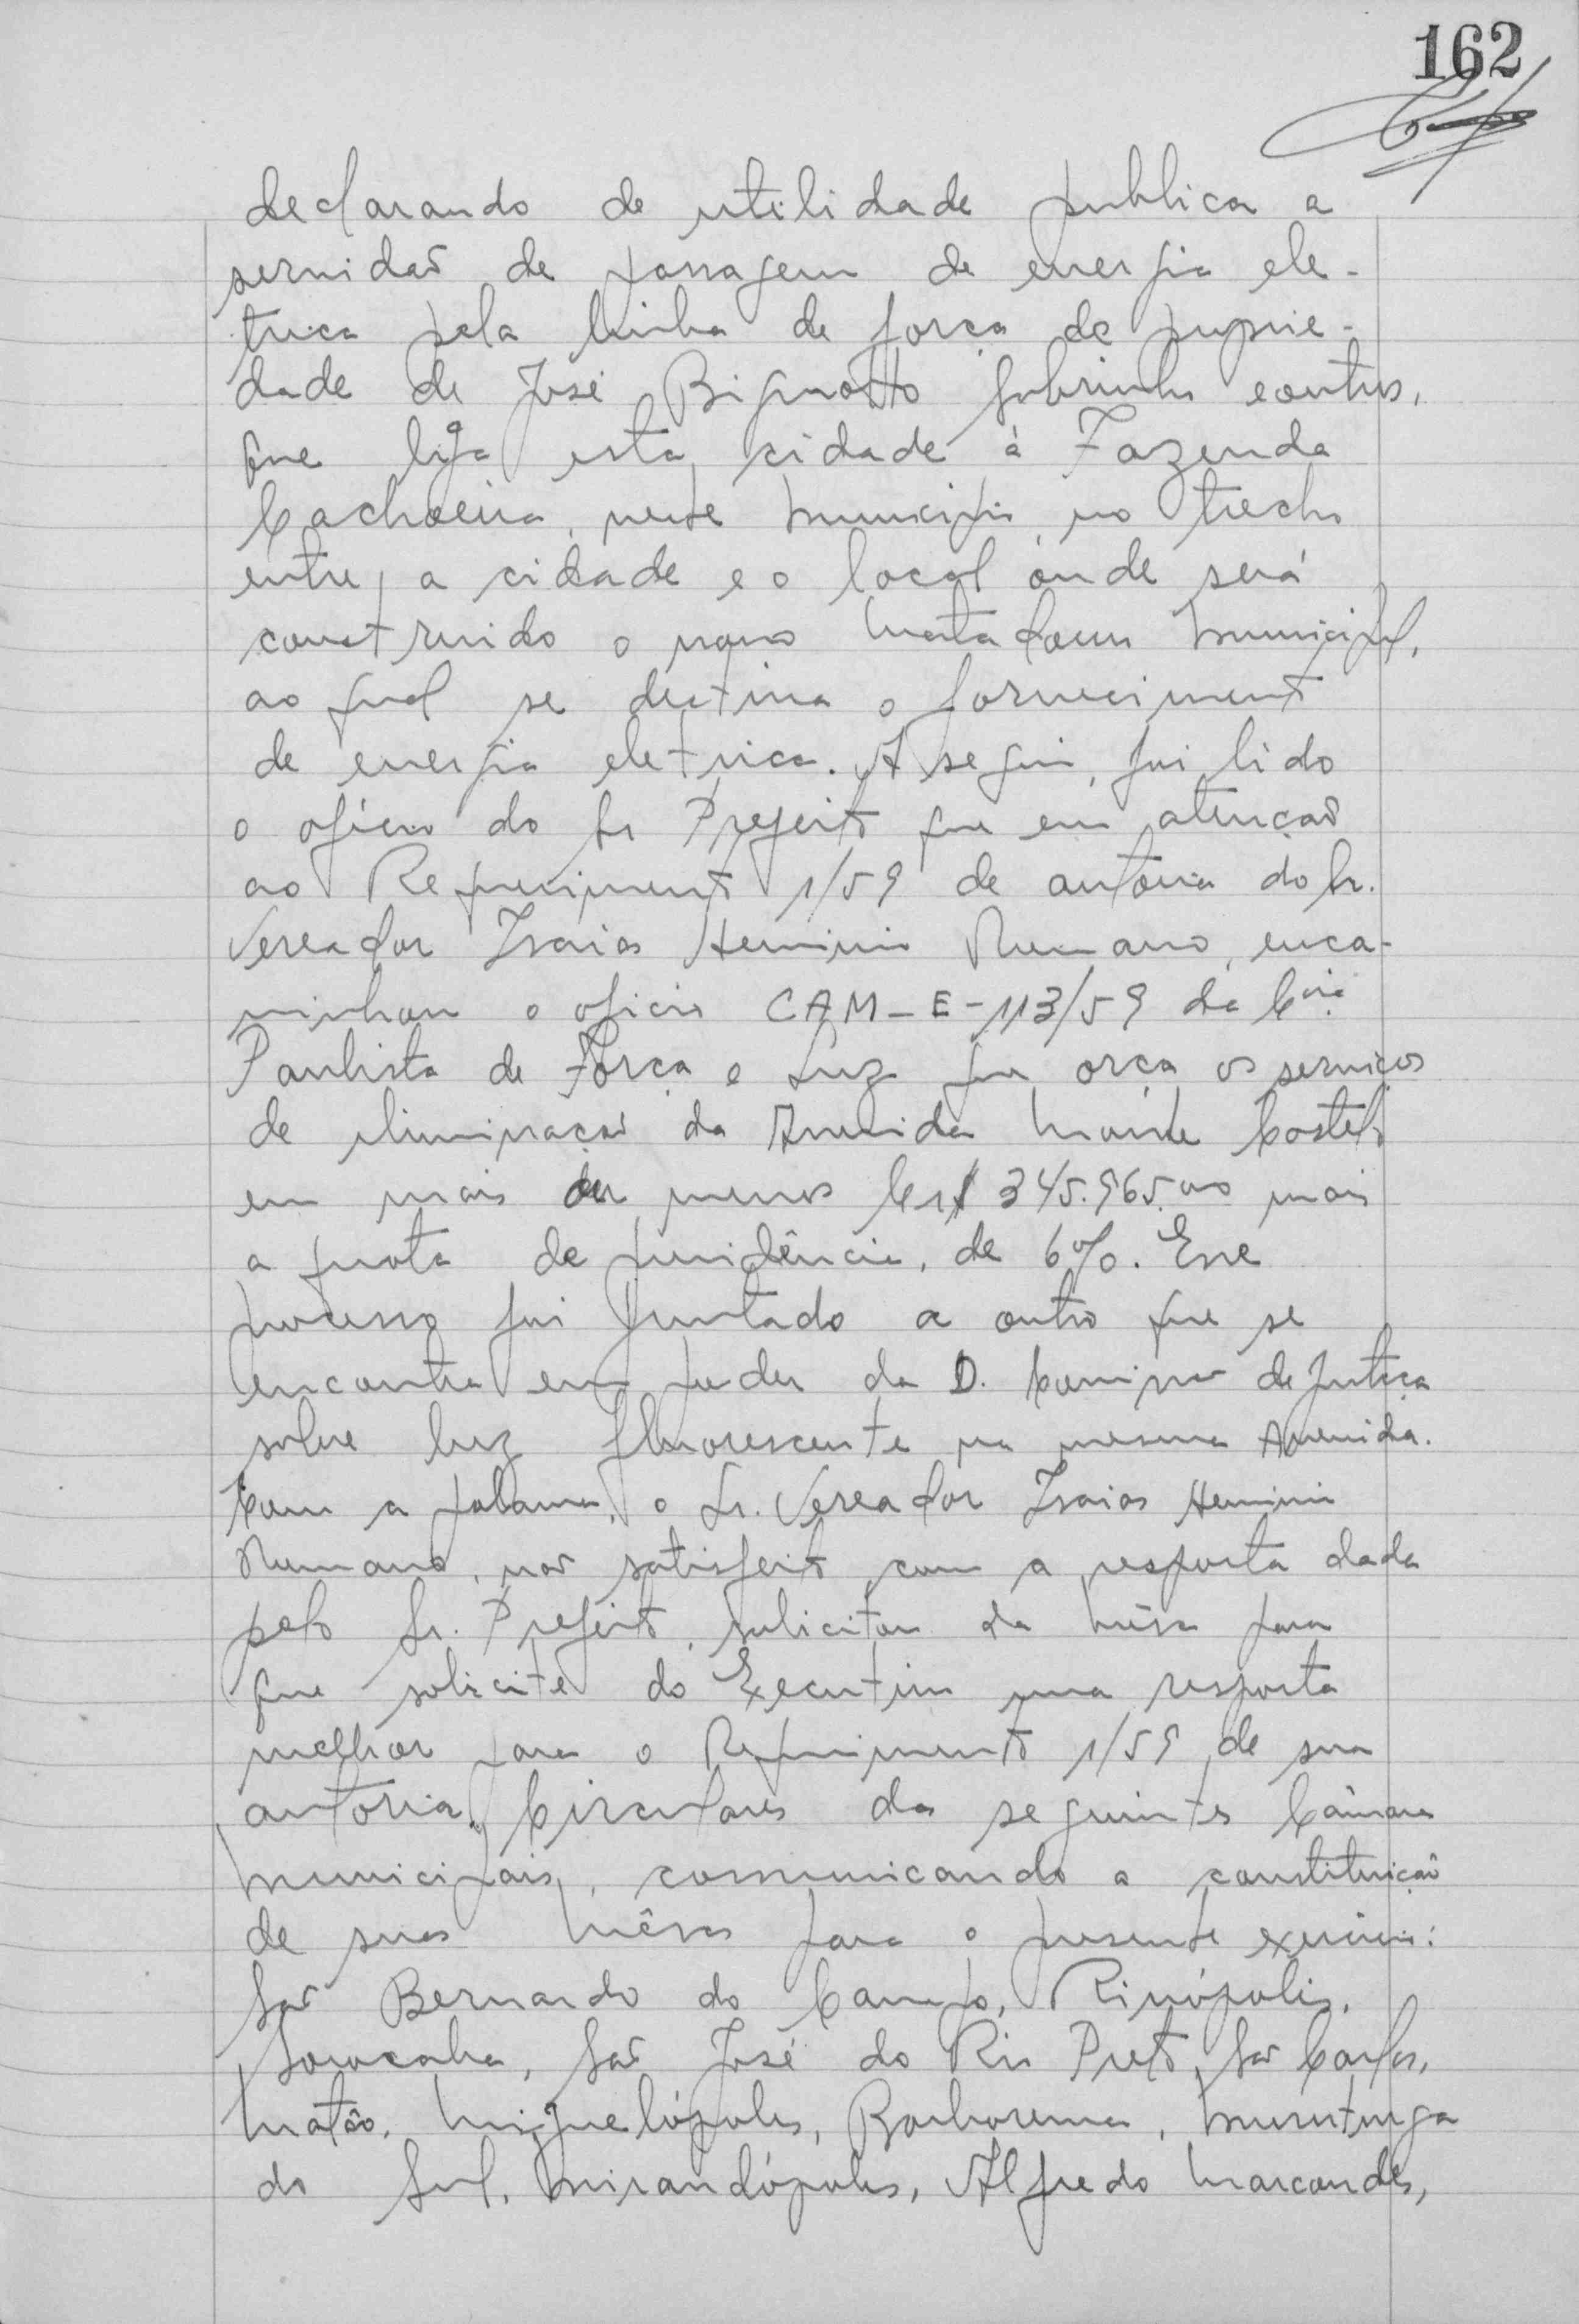 162
declarando de utilidade publica a
servidão de passagem de energia ele-
trica pela linha de força de proprie-
dade de José Bignotto Sobrinho e outros,
que liga esta cidade à Fazenda
Cachoeira, neste municipio, no trecho
entre a cidade e o local onde será
construido o novo Matadouro Municipal,
ao qual se destina o fornecimento
de energia eletrica. A seguir, foi lido
o oficio do Sr Prefeito que em atenção
ao Requerimento 1/59 de autoria do Sr.
Vereador Isaias Herminio Romano, enca-
minhou o oficio CAM-E-113/59 da Cia
Paulista de Força e Luz que orça os serviços
de iluminação da Avenida Monte Castelo
em mais ou menos Cr$ 345.965,00 mais
a quota de previdência, de 6%. Esse
processo foi juntado a outro que se
encontra em poder da D. Comissão de Justiça
sobre luz fluorescente na mesma Avenida.
Com a palavra, o Sr. Vereador Isaias Herminio
Romano, não satisfeito com a resposta dada
pelo Sr. Prefeito, solicitou da mêsa para
que solicite do Executivo uma resposta
melhor para o Requerimento 1/59 de sua
autoria. Circulares das seguintes Câmaras
Municipais, comunicando a constituição
de suas mêsas para o presente exercicio:
São Bernardo do Campo, Rinópolis,
Sorocaba, São José do Rio Preto, São Carlos,
Matão, Miguelópolis, Borborema, Murutinga
do Sul, Mirandópolis, Alfredo Marcondes,